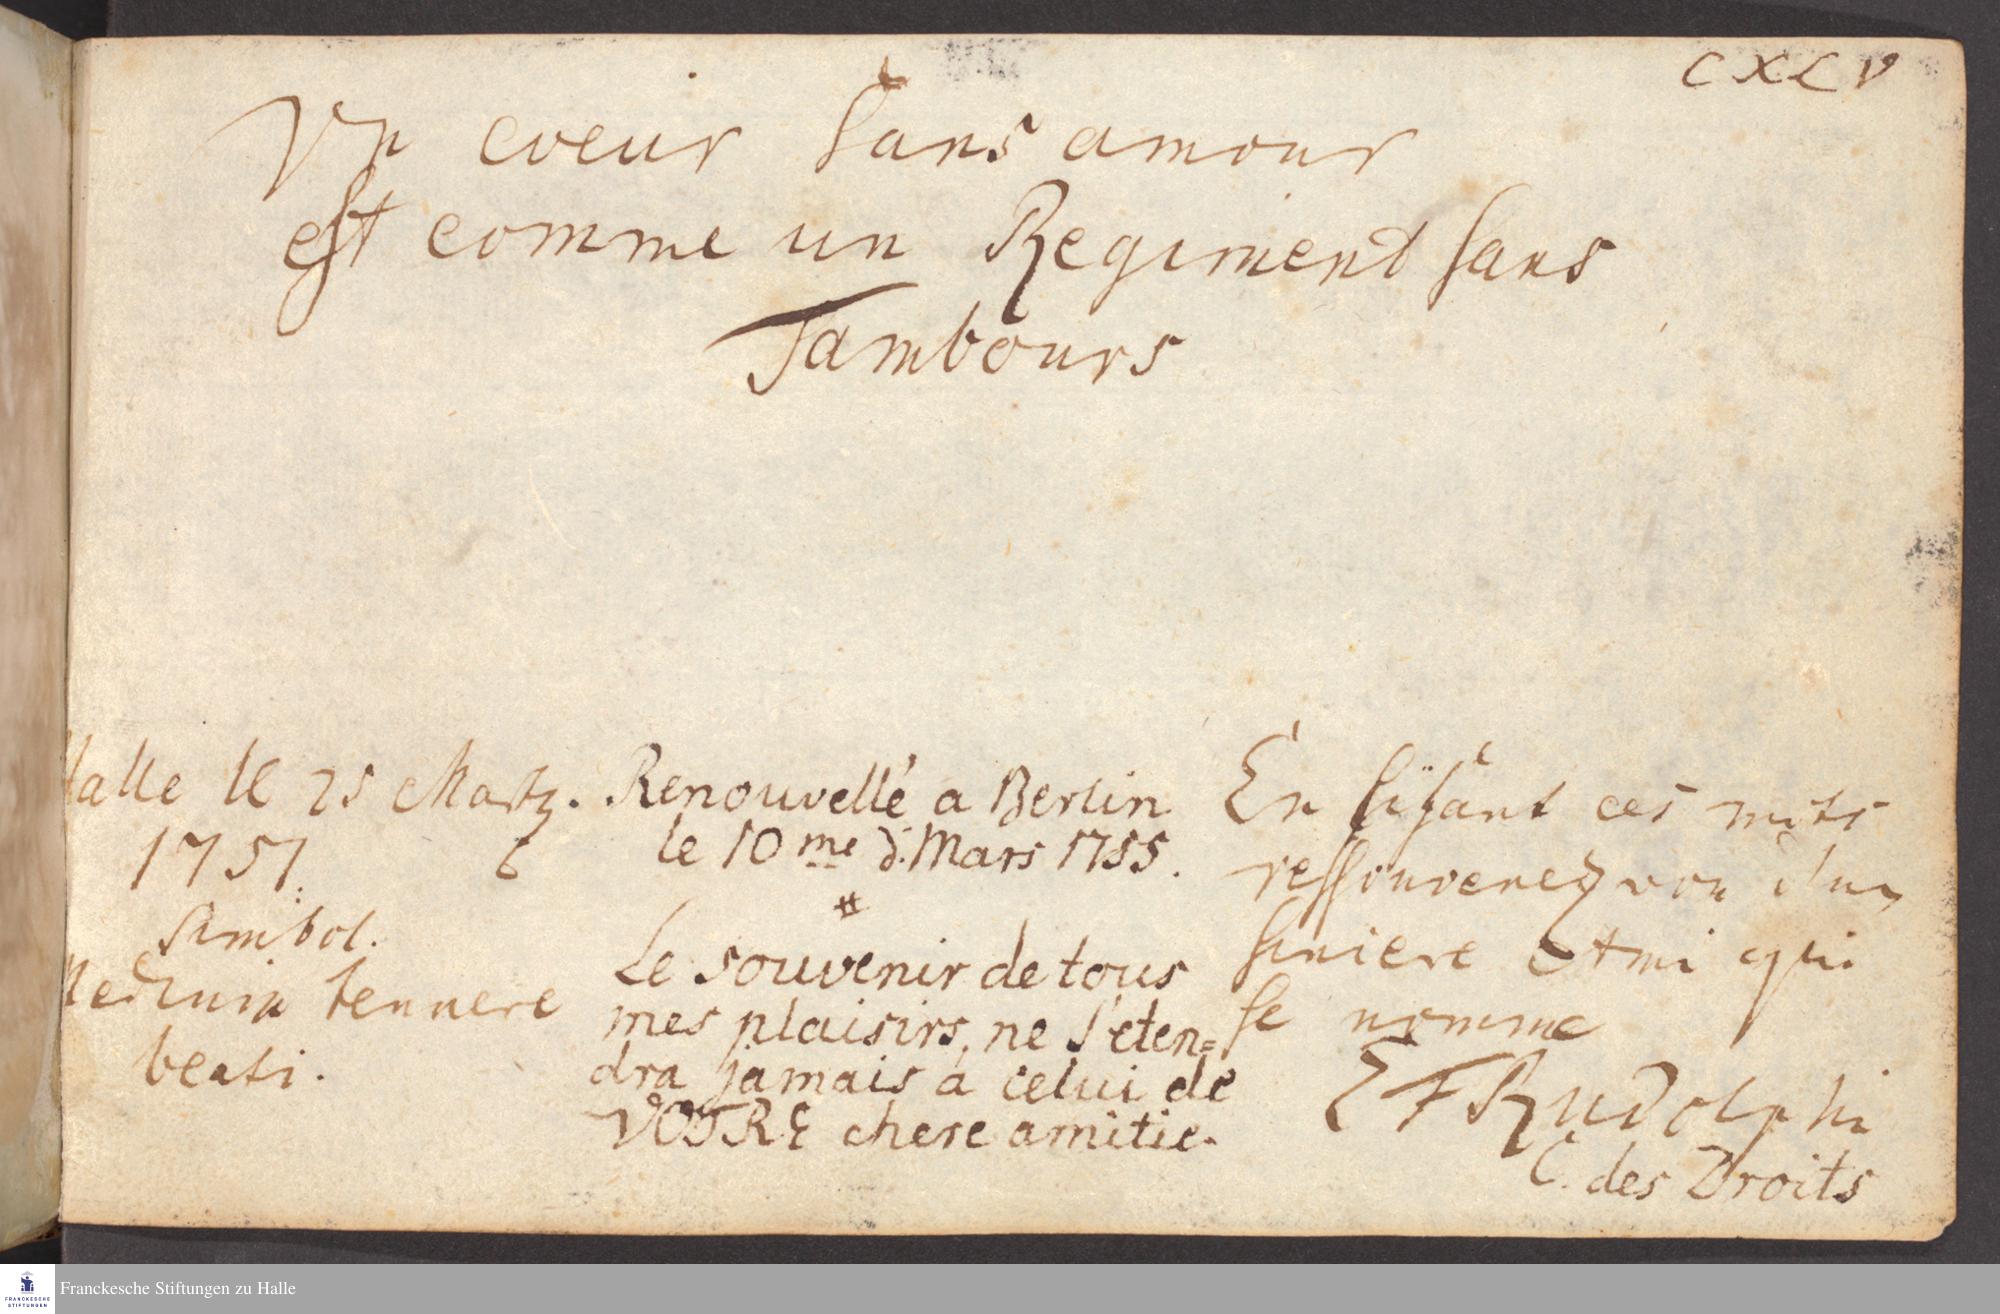 CXLV
Un coeur sans amour
est comme un Regiment sans
Tambours
Halle le 25 Martz.
1751.
Simbol.
Medium tennere
beati.
Renouvellé a Berlin
le 10me d. Mars 1755.
#
Le souvenir de tous
mes plaisirs, ne s'eten=
dra jamais á celui de
VOTRE chere amitie.
En lisant ces mots
ressouvenez vou d'un
siniere Ami qui
se nomme
EFRudolphi
C. des Droits
Franckesche Stiftungen zu Halle
FRANCKESCHE
STIFTUNGEN